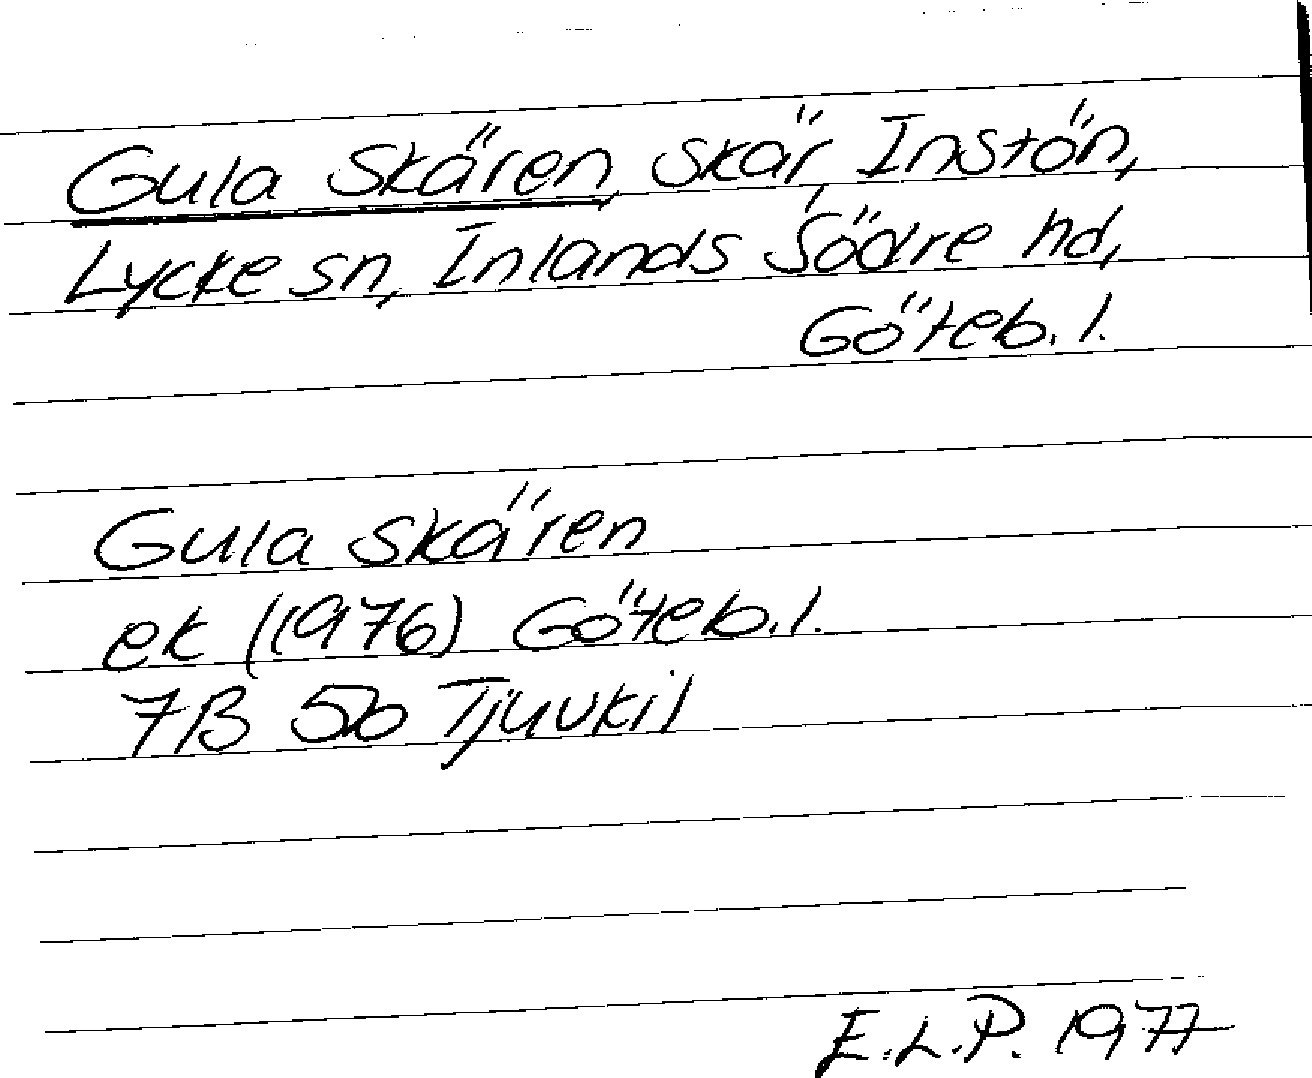 Gula Skären, skär, Instön,
Lycke sn, Inlands Södre hd,
Göteb. l.
Gula skären
ek (1976) Göteb. l.
7B 5b Tjuvkil
E.L.P. 1977